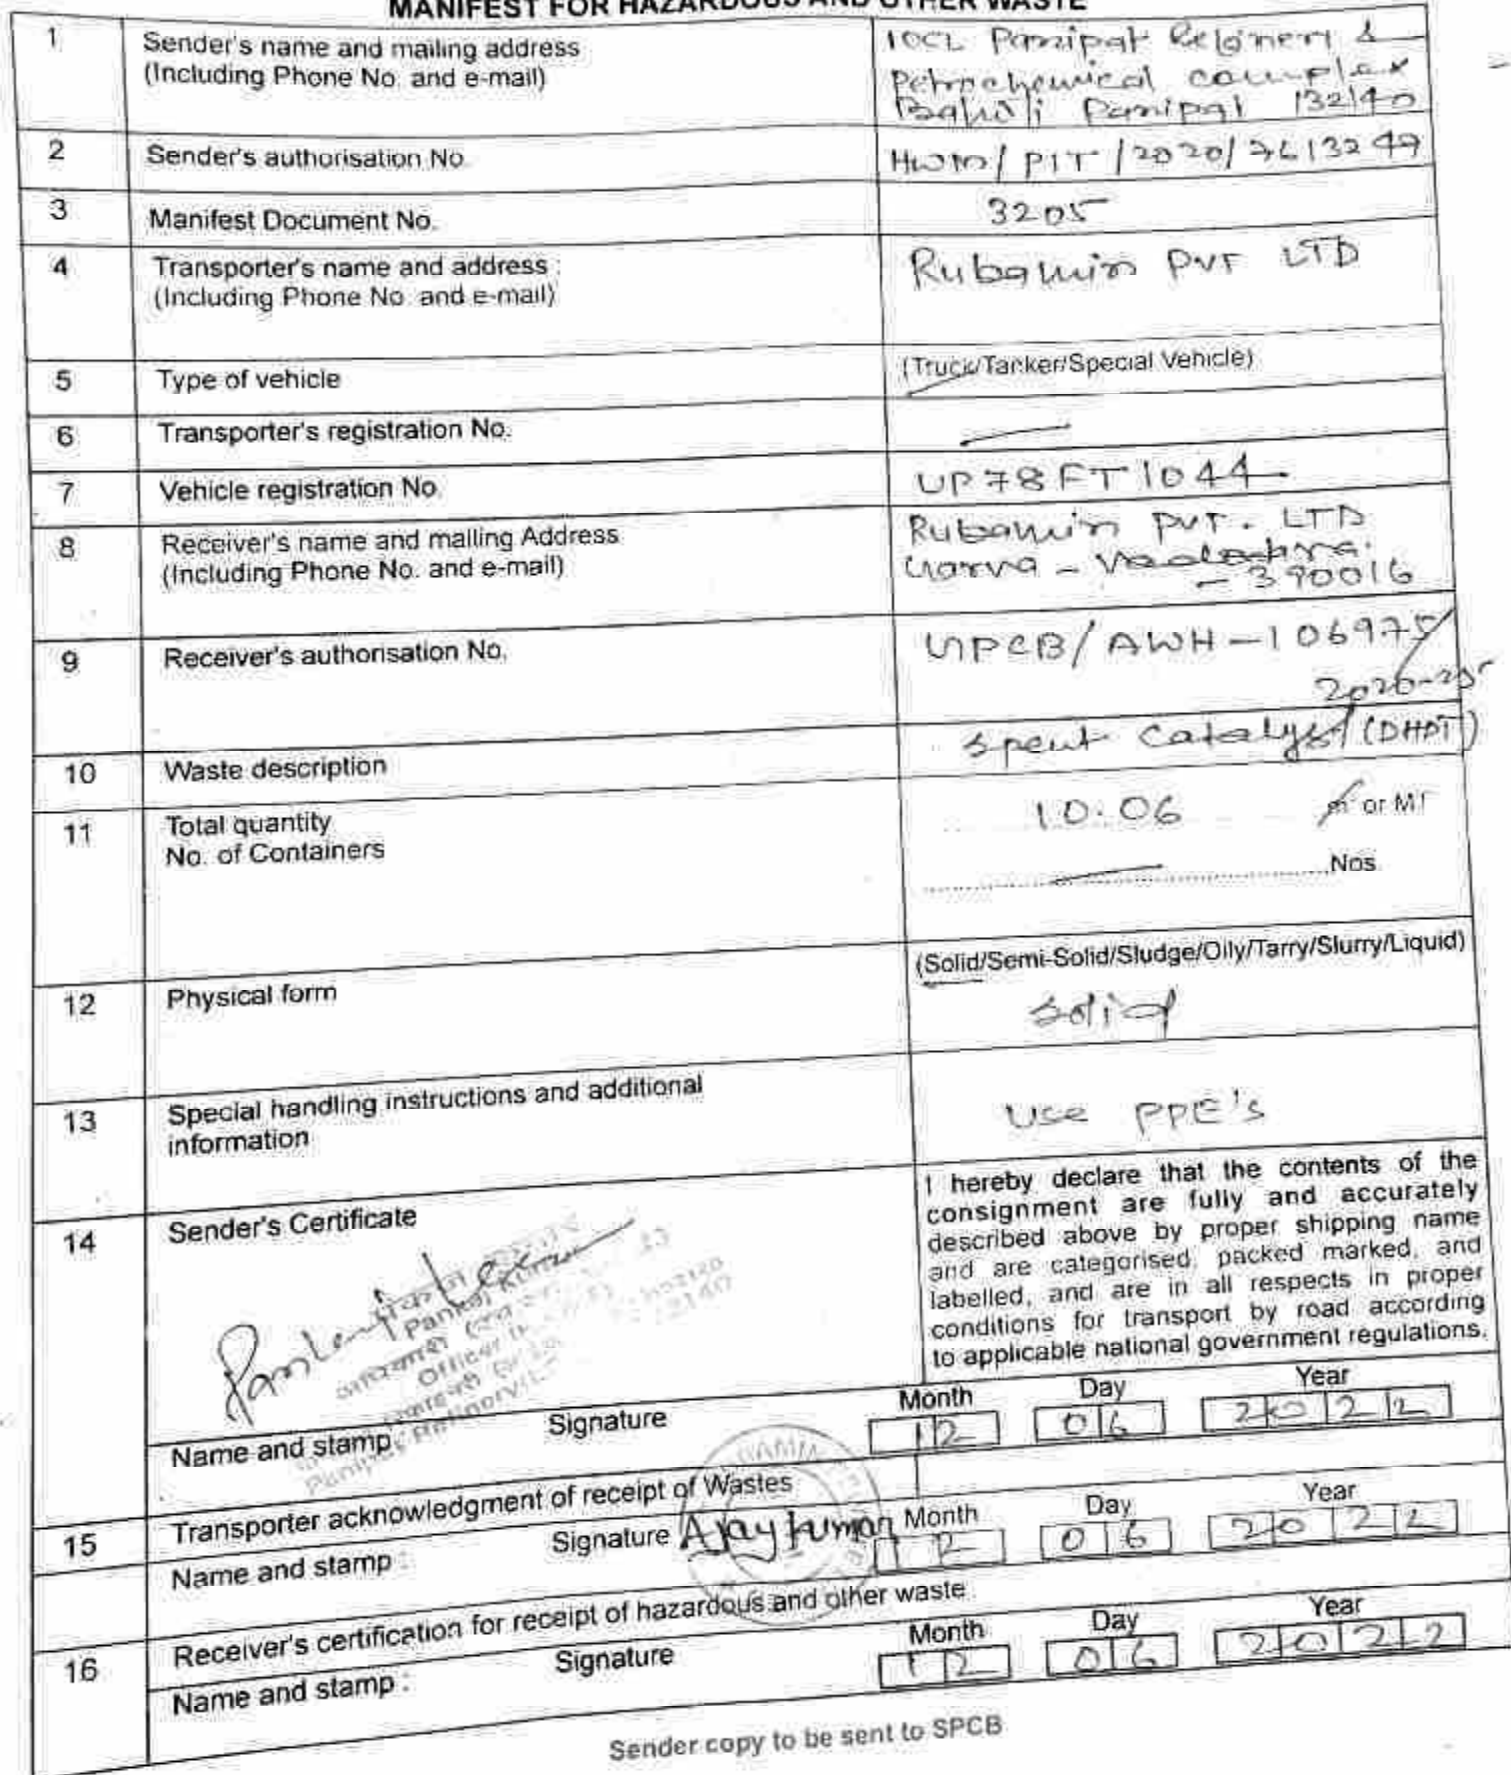 MANIFEST FOR HAZARDOUS AND OTHER WASTE
1 Sender's name and mailing address
(Including Phone No. and e-mail)
IOCL Panipat Refinery &
Petrochemical complex
Baholi Panipat 132140
2 Sender's authorisation No. HWM/PIT/2020/7613249
3 Manifest Document No. 3205
4 Transporter's name and address :
(Including Phone No. and e-mail)
Rubamin PVT LTD
5 Type of vehicle (Truck/Tanker/Special Vehicle)
6 Transporter's registration No.
7 Vehicle registration No. UP78FT1044
8 Receiver's name and mailing Address
(Including Phone No. and e-mail)
Rubamin PVT. LTD
Vadodara.
- 390016
9 Receiver's authorisation No. AWH-106975/
10 Waste description Spent Catalyst (DHDT)
11 Total quantity 10.06 or MT
No. of Containers Nos.
12 Physical form (Solid/Semi-Solid/Sludge/Oily/Tarry/Slurry/Liquid)
Solid
13 Special handling instructions and additional
information
Use PPE's
14 Sender's Certificate
I hereby declare that the contents of the
consignment are fully and accurately
described above by proper shipping name
and are categorised, packed marked, and
labelled, and are in all respects in proper
conditions for transport by road according
to applicable national government regulations.
Pankaj Kumar
Officer
Panipat Refinery
Name and stamp : Signature Month Day Year
12 06 2022
15 Transporter acknowledgment of receipt of Wastes
Name and stamp : Signature Ajay Kumar Month Day Year
12 06 2022
16 Receiver's certification for receipt of hazardous and other waste
Name and stamp : Signature Month Day Year
12 06 2022
Sender copy to be sent to SPCB